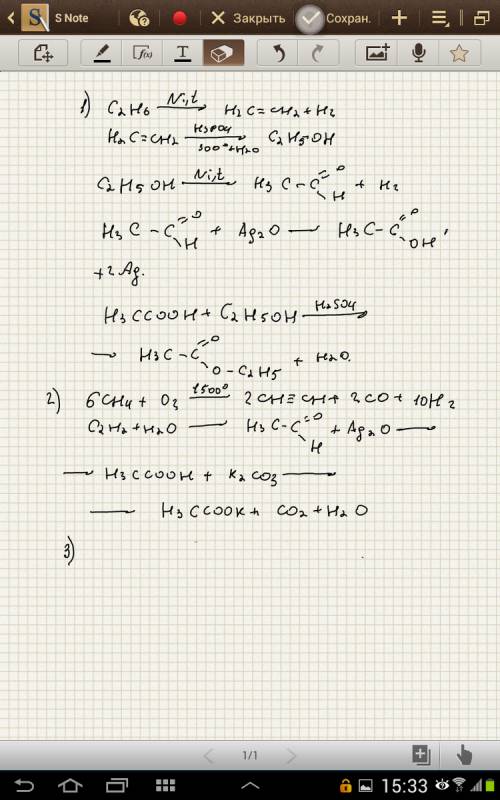 S Note Закрыть Сохран.
f(x) T
1) C2H6 Ni,t→ H2C=CH2 + H2
H2C=CH2 H3PO4→ 300° +H2O C2H5OH
C2H5OH Ni,t→ H3C-C=O H + H2
H3C-C=O H + Ag2O — H3C-C=O OH,
+2Ag.
H3CCOOH + C2H5OH H2SO4→
→ H3C-C=O O-C2H5 + H2O.
2) 6CH4 + O2 1500° 2CH≡CH + 2CO + 10H2
C2H2+H2O — H3C-C=O H + Ag2O —
— H3CCOOH + K2CO3 —
— H3CCOOK + CO2 + H2O
3)
1/1
15:33